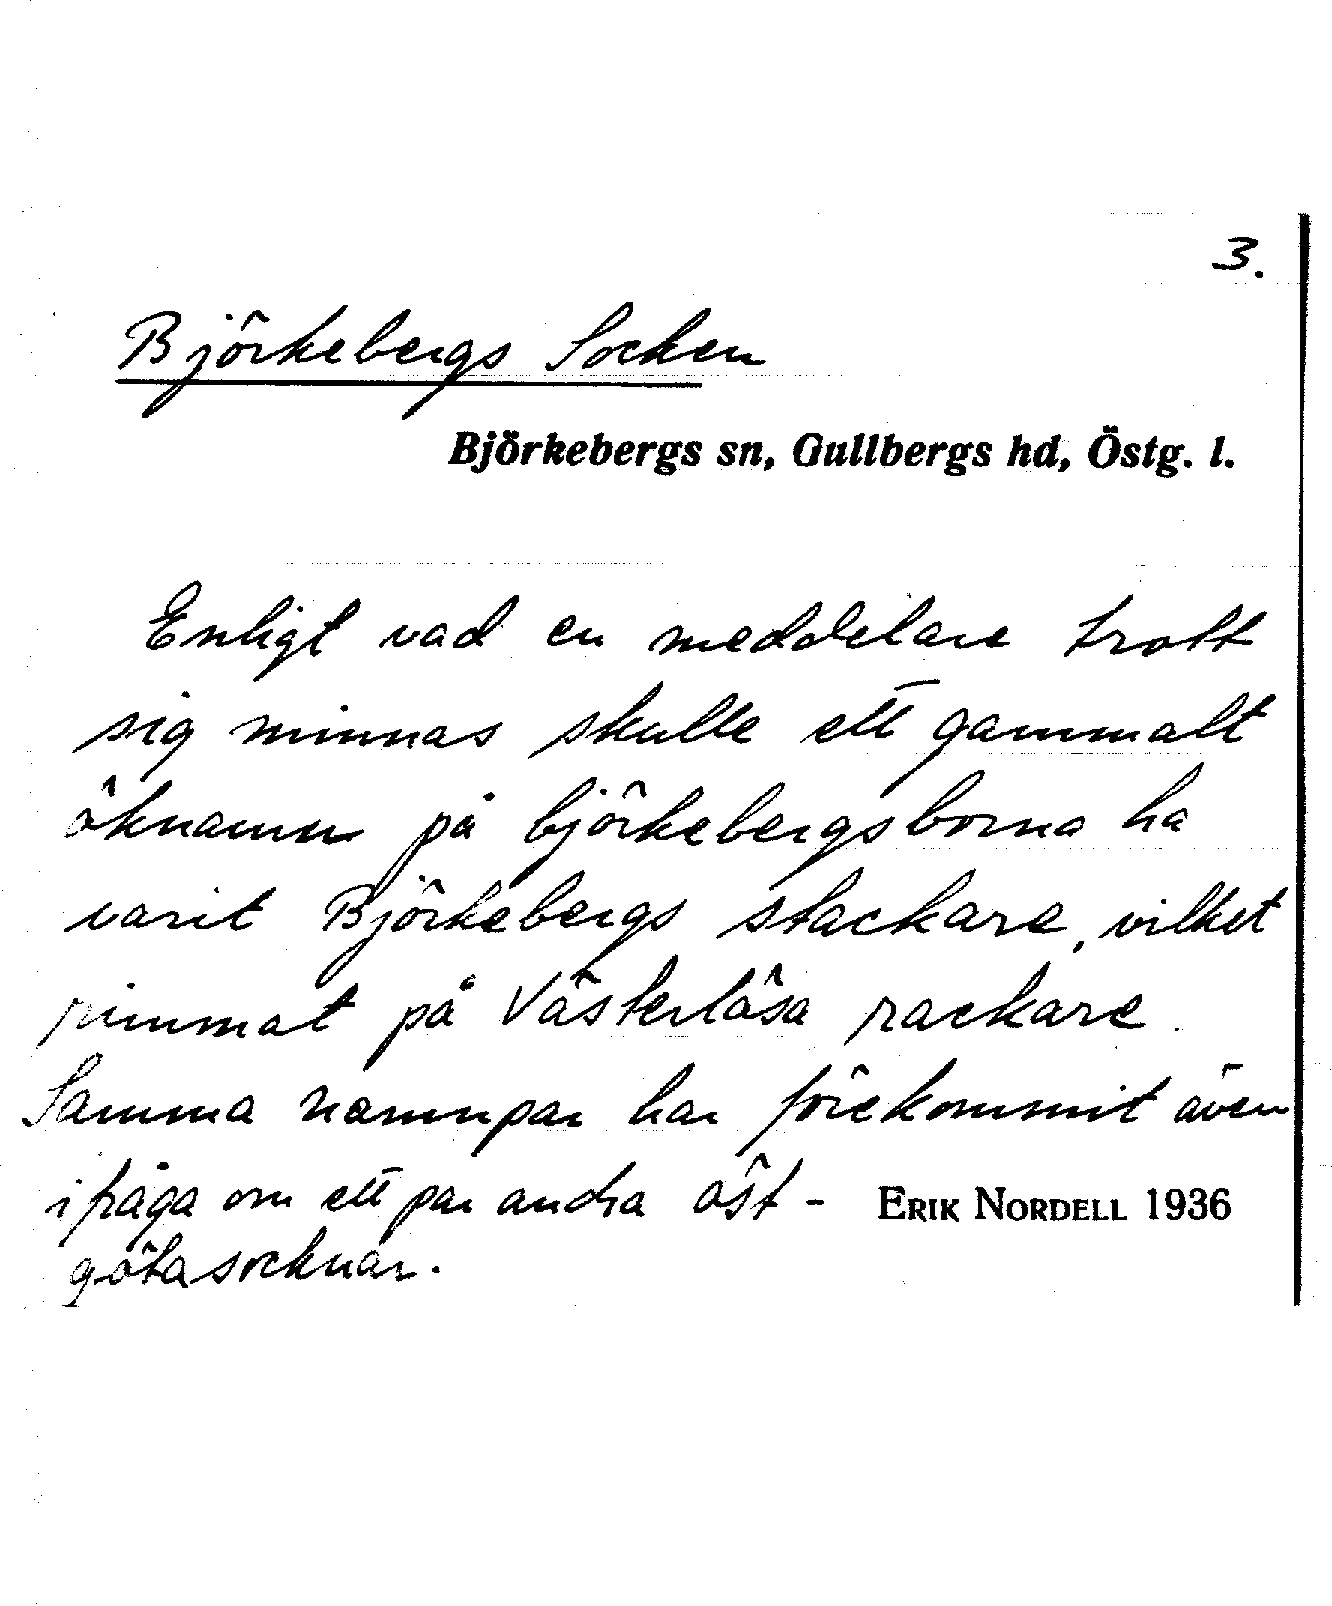 3.
Björkebergs Socken
Björkebergs sn, Gullbergs hd, Östg. l.
Enligt vad en meddelare trott
sig minnas skulle ett gammalt
öknamn på björkebergsborna ha
varit Björkebergs stackare, vilket
rimmat på Västerlösa rackare.
Samma namnpar har förekommit även
ifråga om ett par andra öst-
götasocknar.
ERIK NORDELL 1936